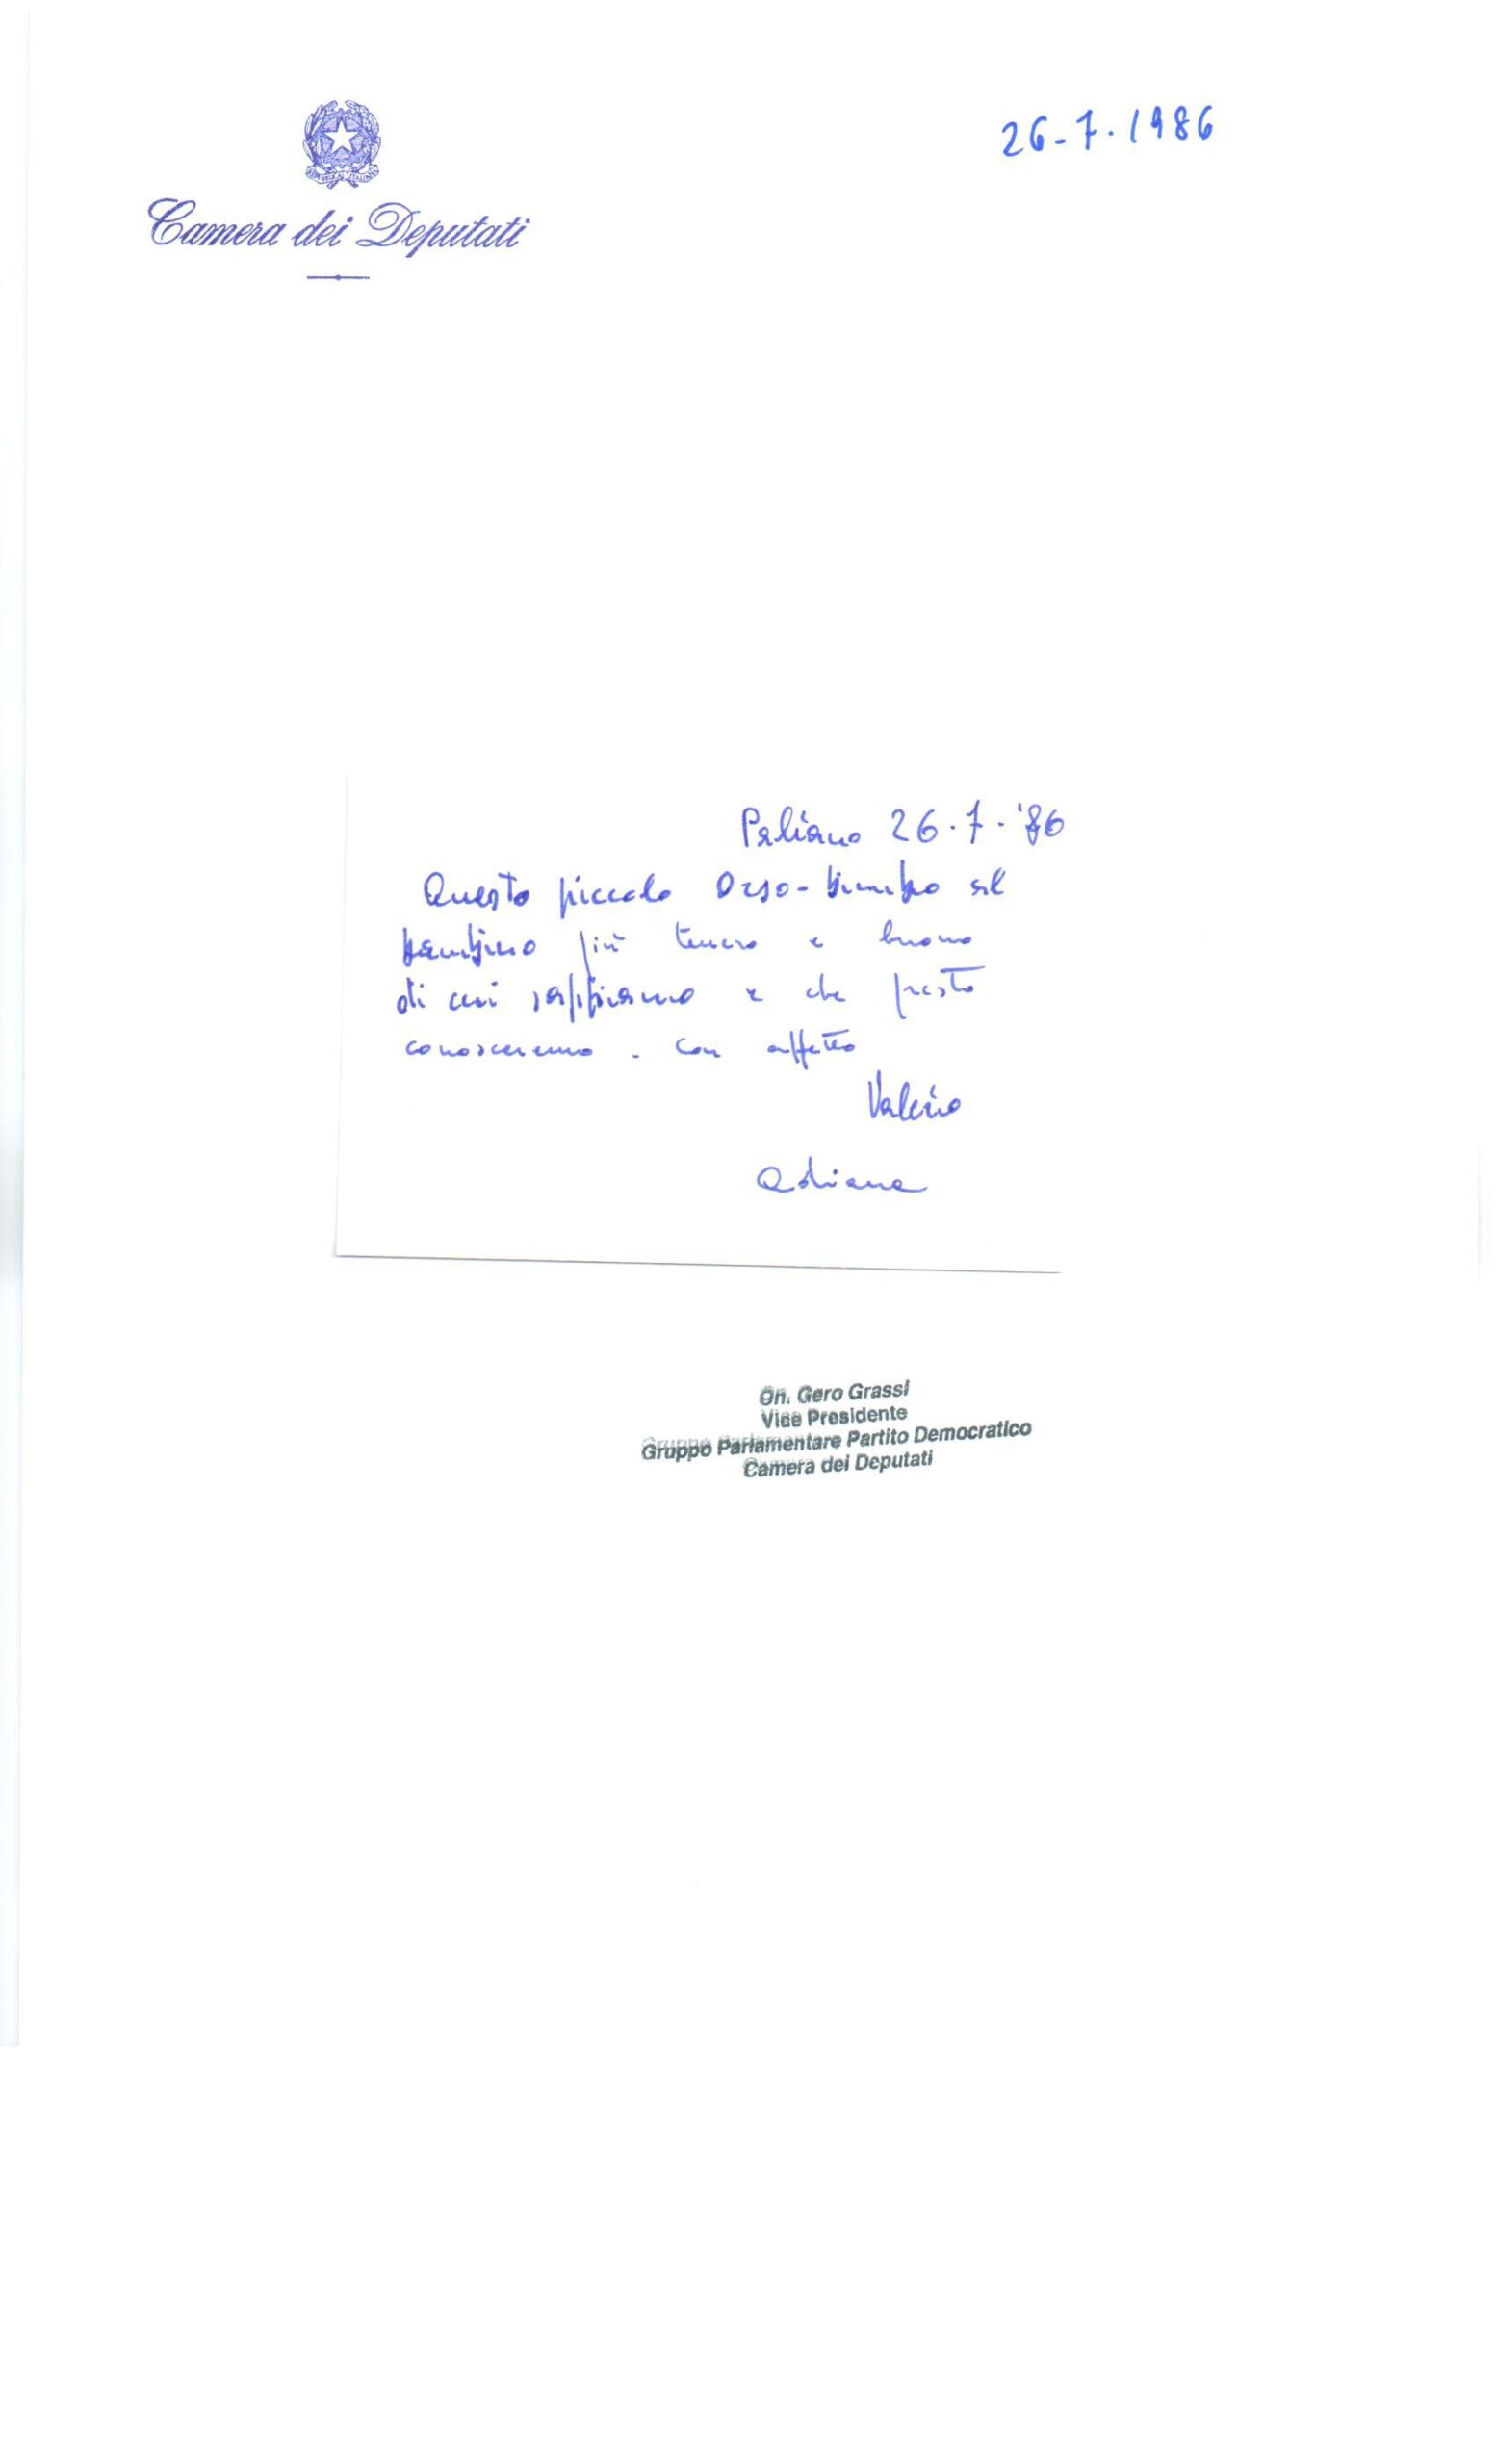 26-7-1986
REPVBBLICA ITALIANA
Camera dei Deputati
Paliano 26.7.'86
Questo piccolo Orso-bimbo al
bambino più tenero e buono
di cui sappiamo e che presto
conosceremo. Con affetto
Valerio
Adriana
On. Gero Grassi
Vice Presidente
Gruppo Parlamentare Partito Democratico
Camera dei Deputati